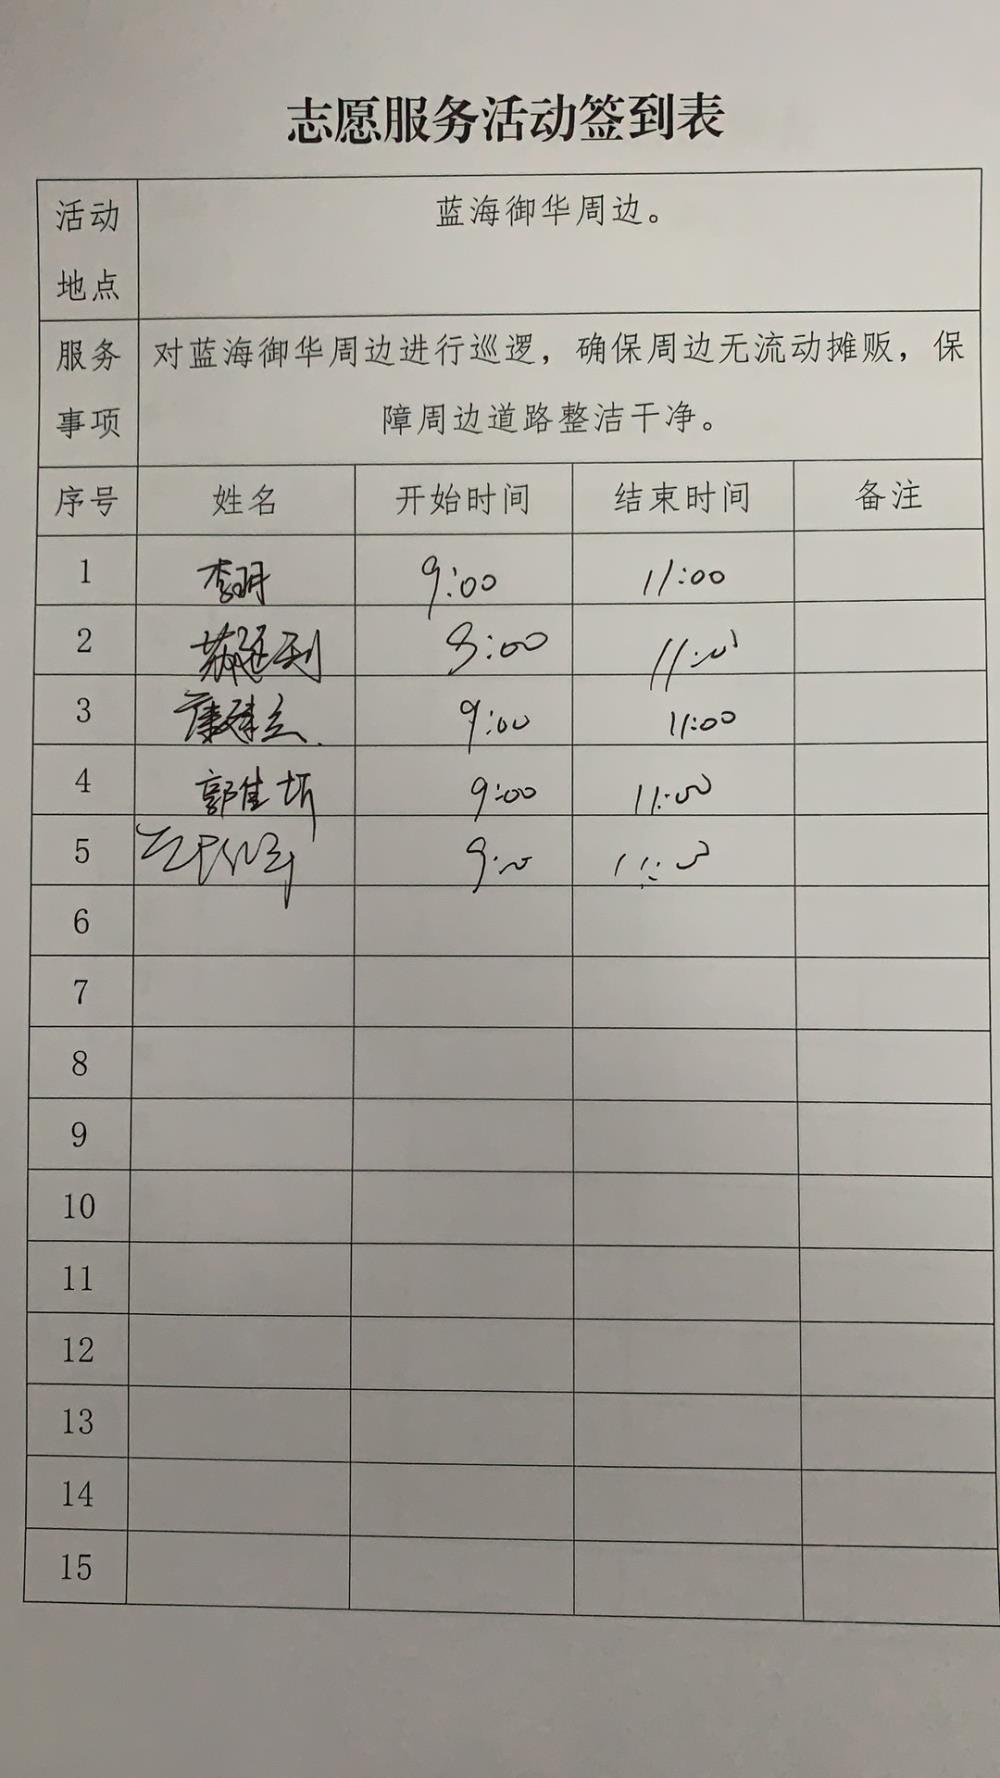 志愿服务活动签到表
活动地点 蓝海御华周边。
服务事项 对蓝海御华周边进行巡逻，确保周边无流动摊贩，保
障周边道路整洁干净。
序号 姓名 开始时间 结束时间 备注
1 李玥 9:00 11:00
2 9:00 11:00
3 康建立 9:00 11:00
4 郭佳圻 9:00 11:00
5 9:00 11:00
6
7
8
9
10
11
12
13
14
15